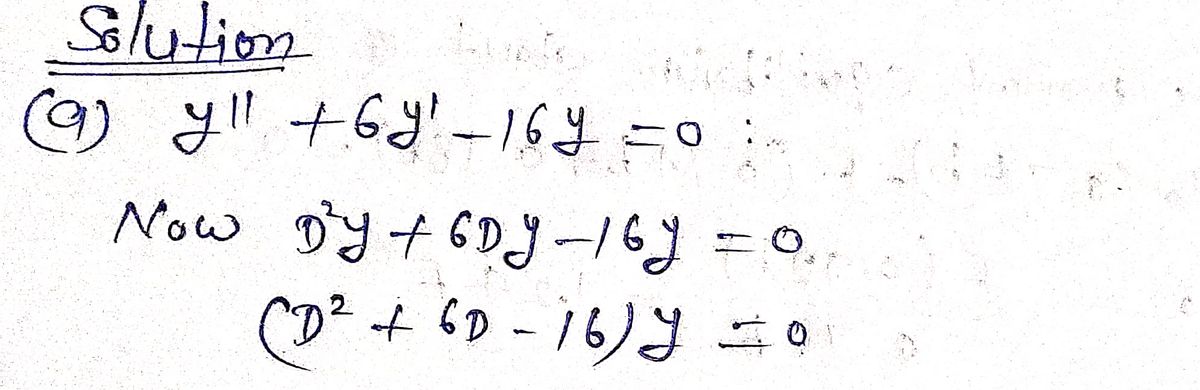 Solution
(a) y'' + 6y' - 16y = 0
Now D²y + 6Dy - 16y = 0
(D² + 6D - 16)y = 0